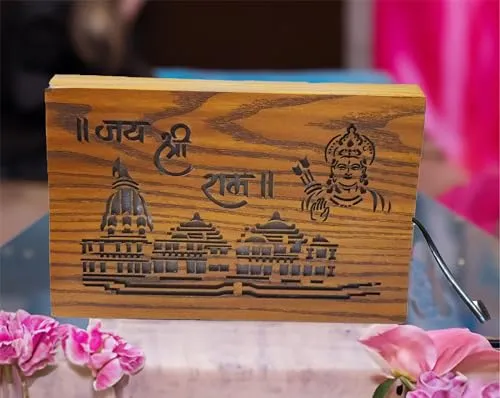 ॥ जय
श्री
राम ॥